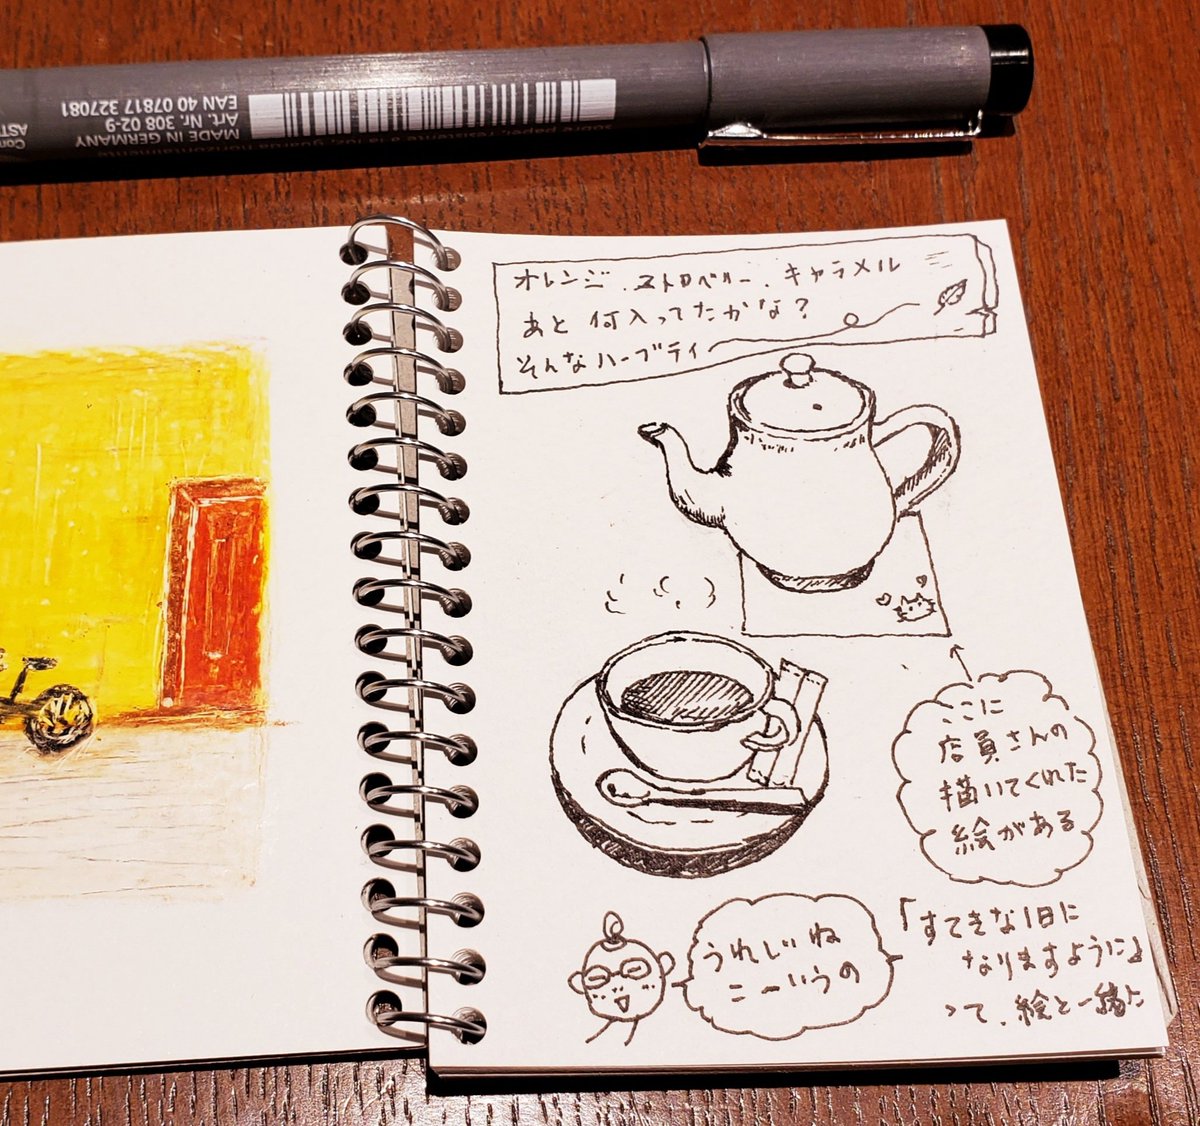 sobre papel, resistente a la luz, guardar horizontalmente
MADE IN GERMANY
Art. Nr. 308 02-9
EAN 40 07817 327081
オレンジ、ストロベリー、キャラメル
あと何入ってたかな?
そんなハーブティ
ここに
店員さんの
描いてくれた
絵がある
うれしいね
こーいうの
「すてきな1日に
なりますように」
って、絵と一緒に